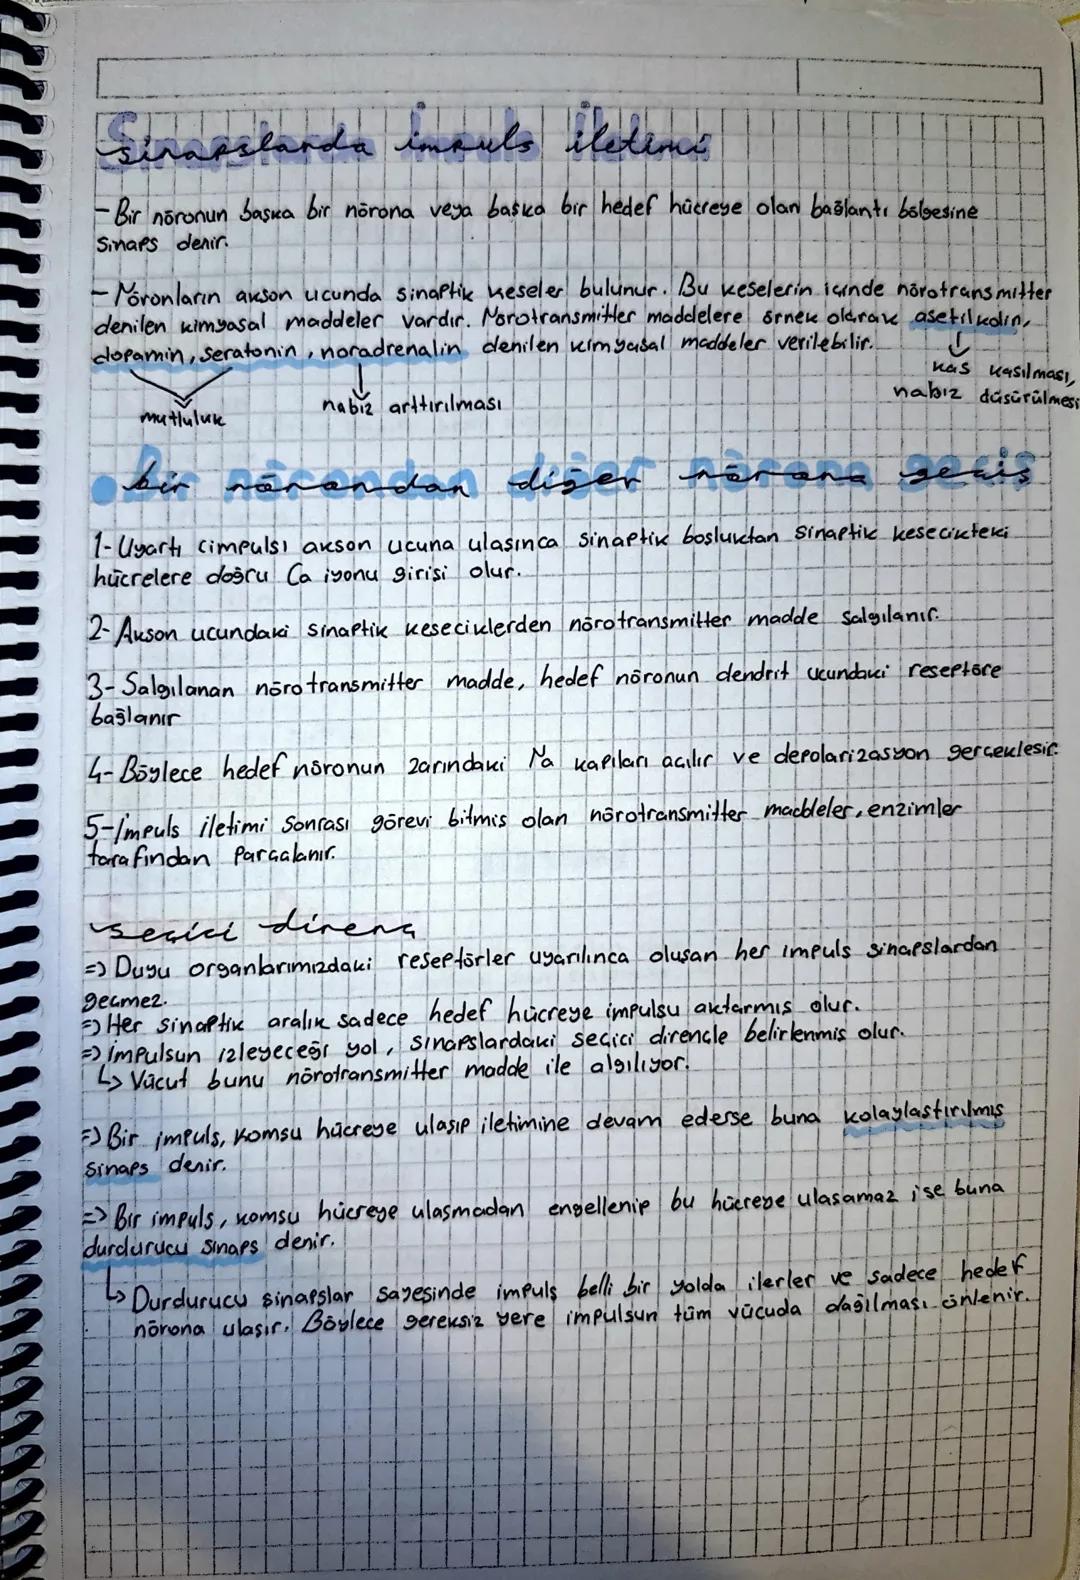 Sinapslarda İmpuls İletimi
- Bir nöronun başka bir nörona veya başka bir hedef hücreye olan bağlantı bölgesine
sinaps denir.
- Nöronların akson ucunda sinaptik keseler bulunur. Bu keselerin içinde nörotransmitter
denilen kimyasal maddeler vardır. Nörotransmitter maddelere örnek olarak asetilkolin,
dopamin, seratonin, noradrenalin denilen kimyasal maddeler verilebilir.
kas kasılması,
nabız düşürülmesi
mutluluk
nabız arttırılması
• bir nörondan diğer nörona geçiş
1- Uyartı (impuls) akson ucuna ulaşınca sinaptik boşluktan sinaptik kesecikteki
hücrelere doğru Ca iyonu girişi olur.
2- Akson ucundaki sinaptik keseciklerden nörotransmitter madde salgılanır.
3- Salgılanan nörotransmitter madde, hedef nöronun dendrit ucundaki reseptöre
bağlanır
4- Böylece hedef nöronun zarındaki Na kapıları açılır ve depolarizasyon gerçekleşir.
5- İmpuls iletimi sonrası görevi bitmiş olan nörotransmitter maddeler, enzimler
tarafından parçalanır.
seçici direnç
=> Duyu organlarımızdaki reseptörler uyarılınca oluşan her impuls sinapslardan
geçmez.
=> Her sinaptik aralık sadece hedef hücreye impulsu aktarmış olur.
=> İmpulsun izleyeceği yol, sinapslardaki seçici dirençle belirlenmiş olur.
↳ Vücut bunu nörotransmitter madde ile algılıyor.
=> Bir impuls, komşu hücreye ulaşıp iletimine devam ederse buna kolaylaştırılmış
sinaps denir.
=> Bir impuls, komşu hücreye ulaşmadan engellenip bu hücreye ulaşamaz ise buna
durdurucu sinaps denir.
↳ Durdurucu sinapslar sayesinde impuls belli bir yolda ilerler ve sadece hedef
nörona ulaşır. Böylece gereksiz yere impulsun tüm vücuda dağılması önlenir.